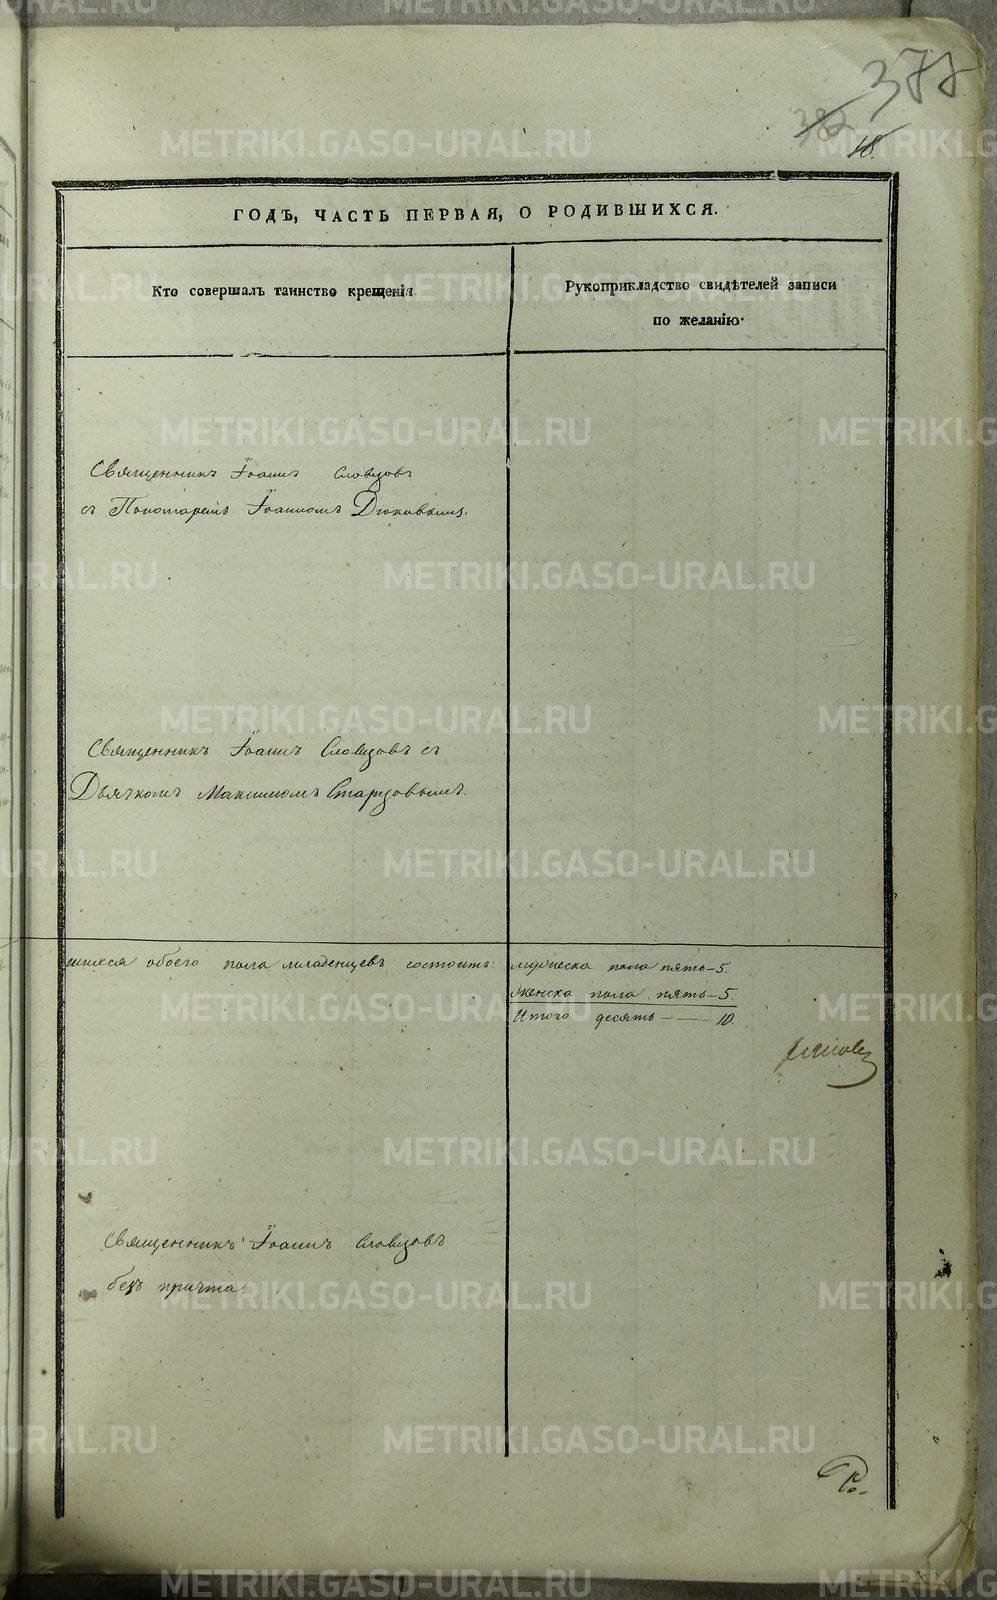 377
382
18.
ГОДЪ, ЧАСТЬ ПЕРВАЯ, О РОДИВШИХСЯ.
Кто совершалъ таинство крещенія
Рукоприкладство свидѣтелей записи
по желанію.
Священникъ Іоаннъ Словцовъ
съ Пономаремъ Іоанномъ Дюковымъ.
Священникъ Іоаннъ Словцовъ съ
Дьячкомъ Максимомъ Старцовымъ.
шихся обоего пола младенцевъ состоитъ: мужеска пола пять – 5.
женска пола пять – 5.
Итого десять – 10.
Священникъ Іоаннъ Словцовъ
безъ причта
METRIKI.GASO-URAL.RU